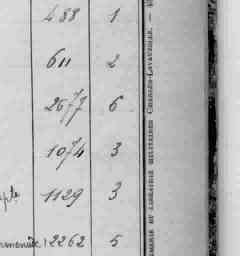 488 1
611 2
2677 6
1074 3
1129 3
2262 5
IMPRIMERIE ET LIBRAIRIE MILITAIRES CHARLES-LAVAUZELLE. —